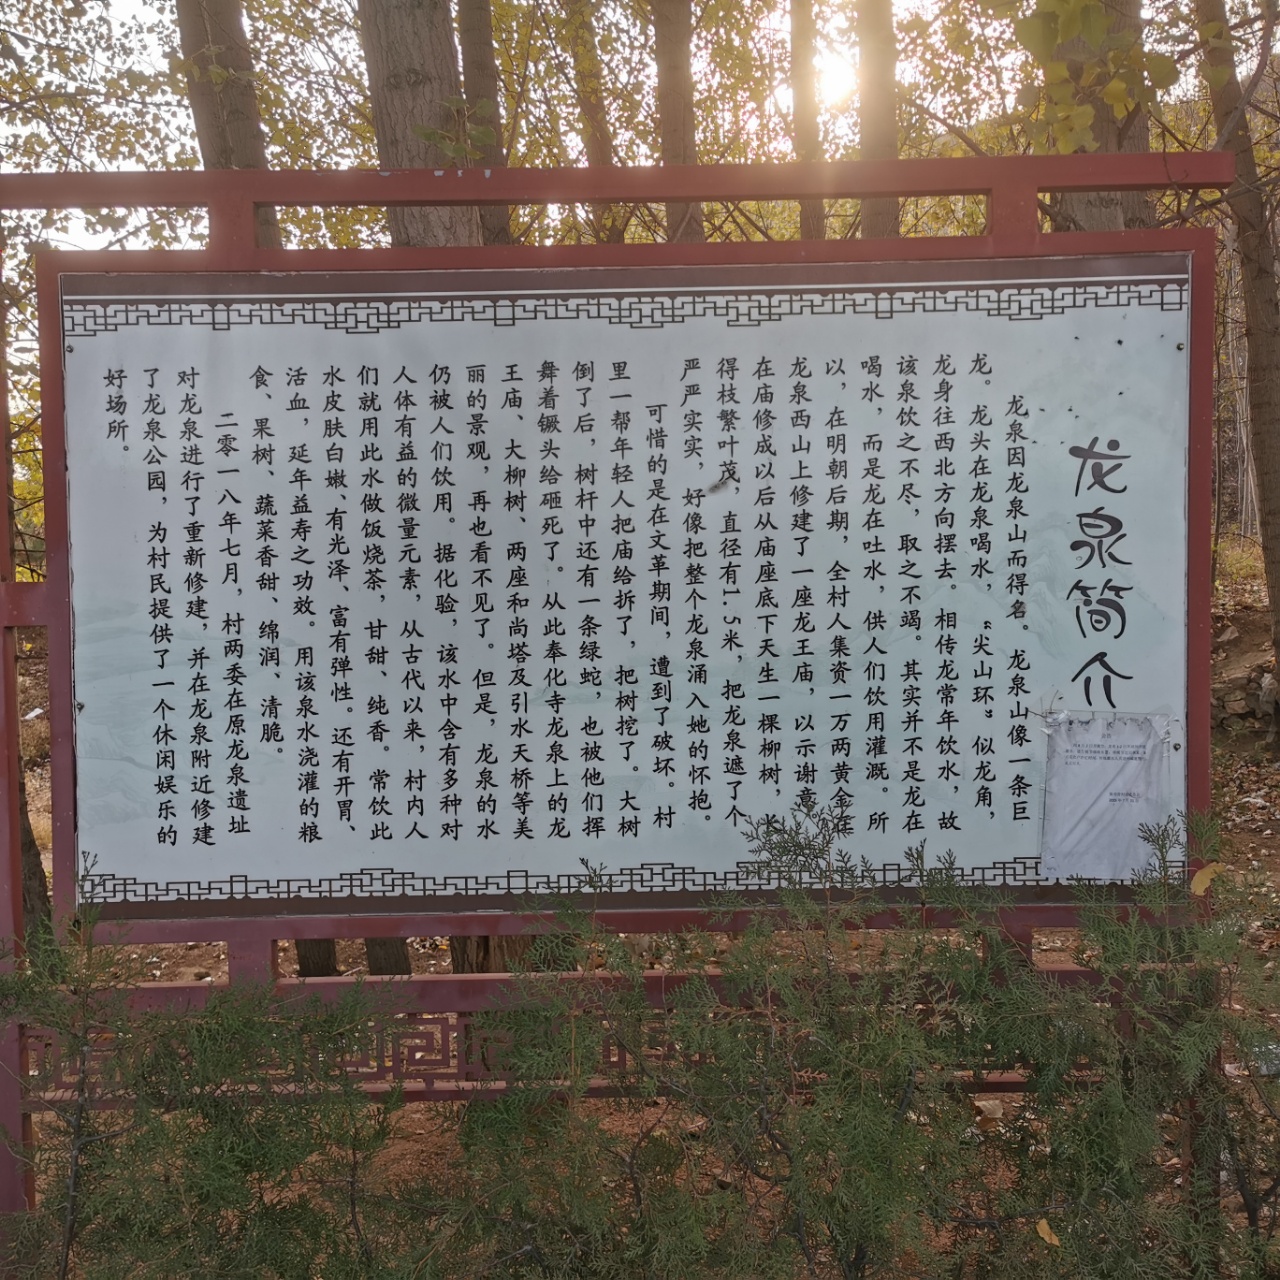 龙泉简介
龙泉因龙泉山而得名。龙泉山像一条巨
龙。龙头在龙泉喝水，“尖山环”似龙角，
龙身往西北方向摆去。相传龙常年饮水，故
该泉饮之不尽，取之不竭。其实并不是龙在
喝水，而是龙在吐水，供人们饮用灌溉。所
以，在明朝后期，全村人集资一万两黄金在
龙泉西山上修建了一座龙王庙，以示谢意
在庙修成以后从庙座底下天生一棵柳树，
得枝繁叶茂，直径有1.5米，把龙泉遮了个
严严实实，好像把整个龙泉涌入她的怀抱。
可惜的是在文革期间，遭到了破坏。村
里一帮年轻人把庙给拆了，把树挖了。大树
倒了后，树杆中还有一条绿蛇，也被他们挥
舞着镢头给砸死了。从此奉化寺龙泉上的龙
王庙、大柳树、两座和尚塔及引水天桥等美
丽的景观，再也看不见了。但是，龙泉的水
仍被人们饮用。据化验，该水中含有多种对
人体有益的微量元素，从古代以来，村内人
们就用此水做饭烧茶，甘甜、纯香。常饮此
水皮肤白嫩、有光泽、富有弹性。还有开胃、
活血，延年益寿之功效。用该泉水浇灌的粮
食、果树、蔬菜香甜、绵润、清脆。
二零一八年七月，村两委在原龙泉遗址
对龙泉进行了重新修建，并在龙泉附近修建
了龙泉公园，为村民提供了一个休闲娱乐的
好场所。